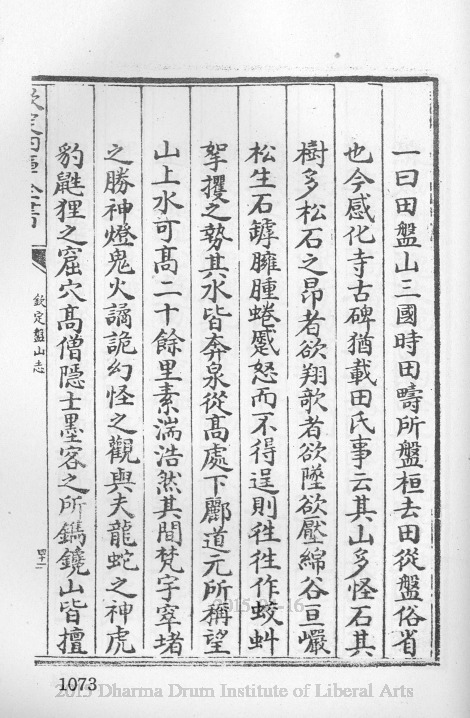 一曰田盤山三國時田疇所盤桓去田從盤俗省
也今感化寺古碑猶載田氏事云其山多怪石其
樹多松石之昂者欲翔欹者欲墜欲壓綿谷亘巘
松生石罅臃腫蜷蹙怒而不得逞則徃徃作蛟虯
拏攫之勢其水皆奔泉從髙處下酈道元所稱望
山上水可髙二十餘里素湍浩然其間梵字窣堵
之勝神燈鬼火譎詭幻怪之觀與夫龍蛇之神虎
豹鼪狸之窟穴髙僧隱士墨客之所鐫鑱山皆擅
欽定四庫全書
欽定盤山志
四十二
1073
2015-04-16
2015 Dharma Drum Institute of Liberal Arts